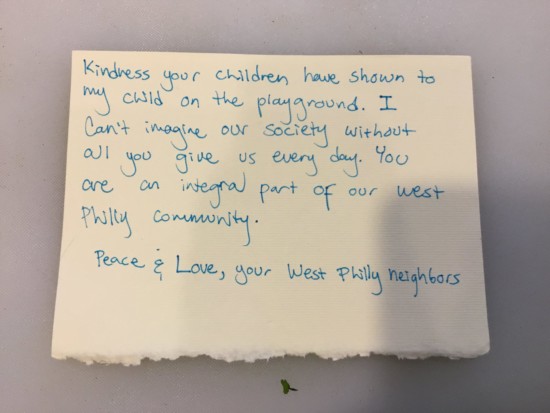 Kindness your children have shown to
my child on the playground. I
Can't imagine our society without
all you give us every day. You
are an integral part of our west
Philly community.
Peace & Love, your West Philly neighbors